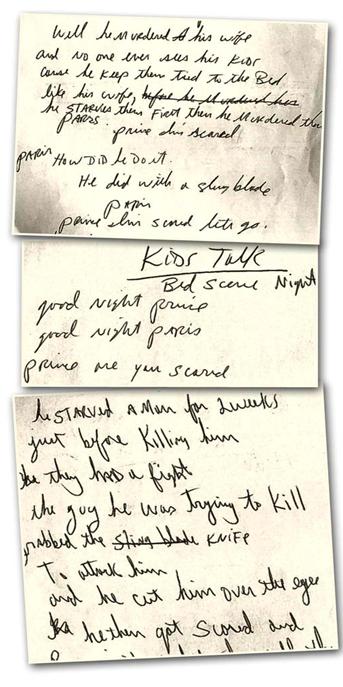 Well he Murdered his wife
and no one ever sees his Kids
cause he keep them tied to the Bed
like his wife, before he Murdered his
he STARVES them First then he Murdered the
PARIS
prince Im scared
PARIS How DID he Do it.
He did with a sling blade
PARIS
prince Im scared lets go.
Kids Talk
Bed Scene Night
good night prince
good night PARIS
prince are you scared
he STARVED A Man for 2 weeks
just before Killing him
they HAD a fight
the guy he was trying to Kill
grabbed the sling blade KNIFE
To attack him
and he cut him over the eye
he then got scared and